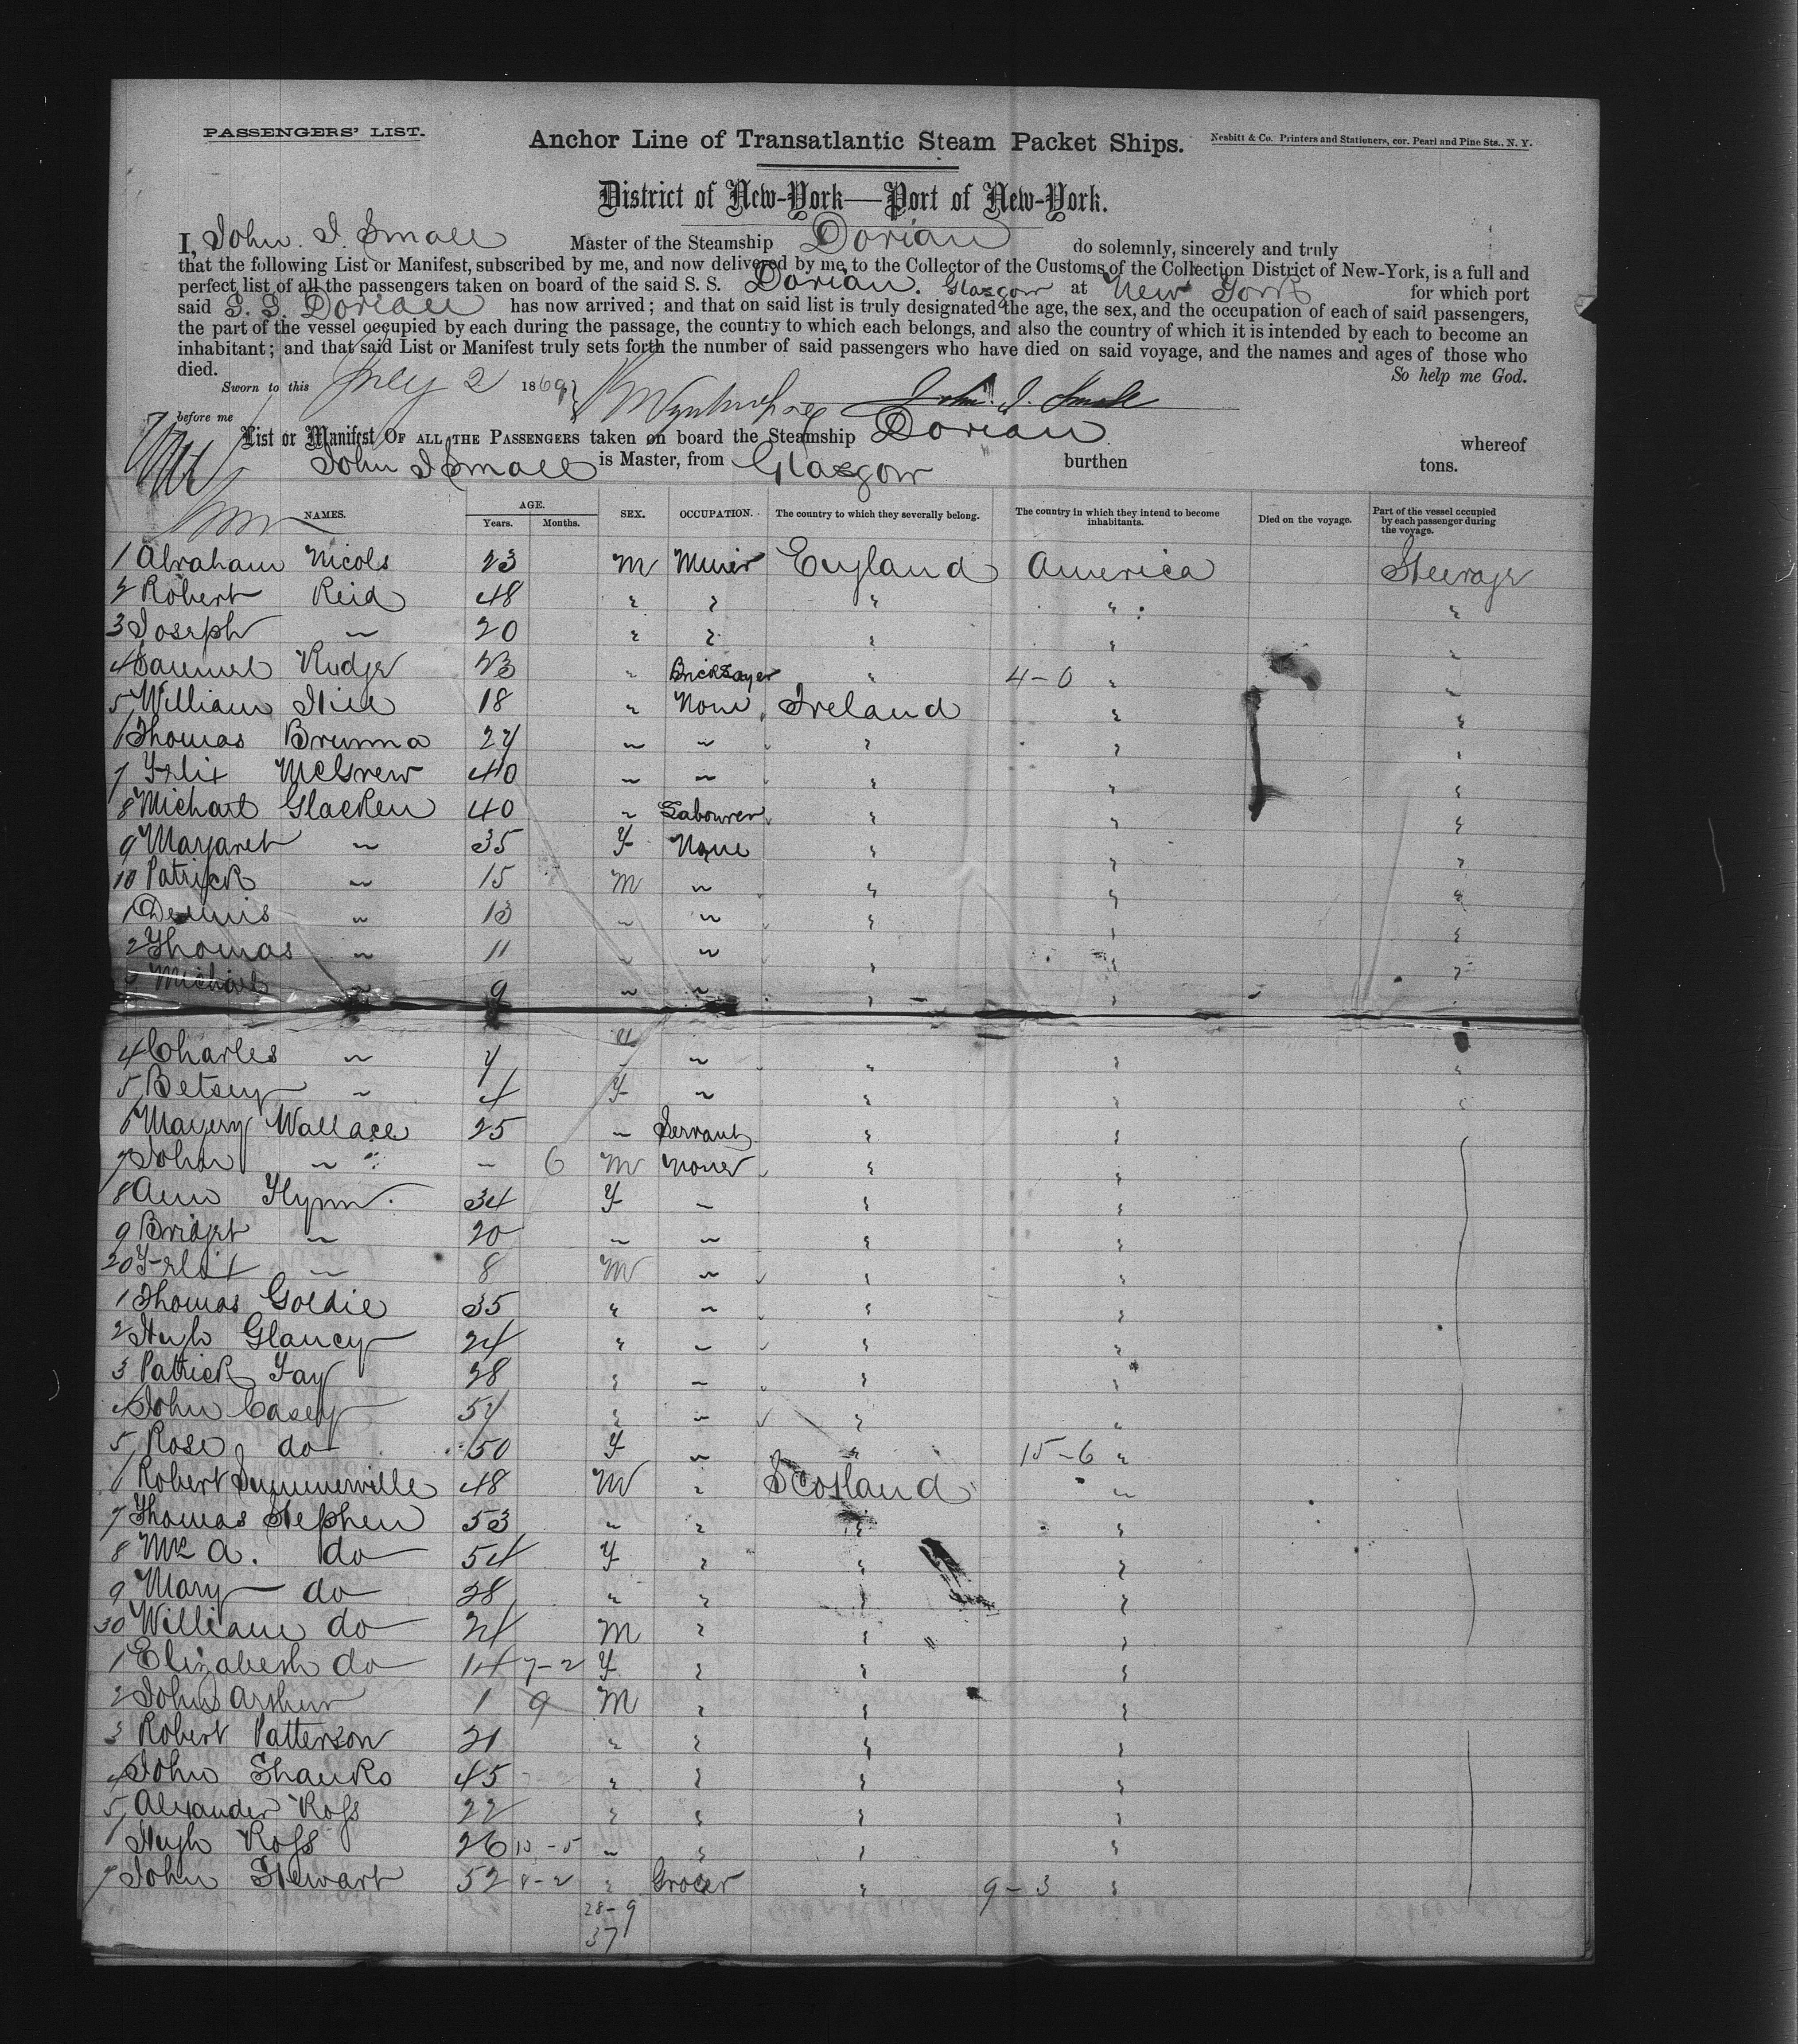 PASSENGERS' LIST. Anchor Line of Transatlantic Steam Packet Ships. Nesbitt & Co. Printers and Stationers, cor. Pearl and Pine Sts., N. Y.
District of New-York—Port of New-York.
I, John. I. Small Master of the Steamship Dorian do solemnly, sincerely and truly
that the following List or Manifest, subscribed by me, and now delivered by me to the Collector of the Customs of the Collection District of New-York, is a full and
perfect list of all the passengers taken on board of the said S. S. Dorian. Glasgow at New York for which port
said S. S. Dorian has now arrived; and that on said list is truly designated the age, the sex, and the occupation of each of said passengers,
the part of the vessel occupied by each during the passage, the country to which each belongs, and also the country of which it is intended by each to become an
inhabitant; and that said List or Manifest truly sets forth the number of said passengers who have died on said voyage, and the names and ages of those who
died. So help me God.
Sworn to this July 2 1869 John. I. Small
before me
List or Manifest OF ALL THE PASSENGERS taken on board the Steamship Dorian whereof
John I Small is Master, from Glasgow burthen tons.
NAMES. AGE. Years. Months. SEX. OCCUPATION. The country to which they severally belong. The country in which they intend to become inhabitants. Died on the voyage. Part of the vessel occupied by each passenger during the voyage.
1 Abraham Nicols 23 M Miner England America Steerage
2 Robert Reid 48 " " " " "
3 Joseph " 20 " " " " "
4 Samuel Rudge 23 " Bricklayer " 4-0 " "
5 William Hill 18 " None Ireland " "
6 Thomas Brunna 27 " " " " "
7 Felix McGrew 40 " " " " "
8 Michael Glacken 40 " Labourer " " "
9 Margaret " 35 F None " " "
10 Patrick " 15 M " " " "
1 Dennis " 13 " " " " "
2 Thomas " 11 " " " " "
3 Michael " 9 " " " " "
4 Charles " 7 M " " " "
5 Betsey " 4 F " " " "
6 Wallace 25 " Servant " "
7 John " - 6 M None " "
8 Ann Flynn 34 F " " "
9 Bridget " 20 " " " "
20 Felix " 8 M " " "
1 Thomas Goldie 35 " " " "
2 Hugh Glancy 24 " " " "
3 Patrick Fay 28 " " " "
4 John Casey 57 " " " "
5 Rose do 50 F " " 15-6 "
6 Robert Summerville 48 M " Scotland "
7 Thomas Stephen 53 " " " "
8 Mrs A. do 54 F " " "
9 Mary do 28 " " " "
30 William do 24 M " " "
1 Elizabeth do 14 7-2 F " " "
2 John Arthur 1 9 M " " "
3 Robert Patterson 21 " " " "
4 John Shanks 45 " " " "
5 Alexander Ross 22 " " " "
6 Hugh Ross 26 13-5 " " " "
7 John Stewart 52 8-2 " Grocer " 9-3 "
28-9
37